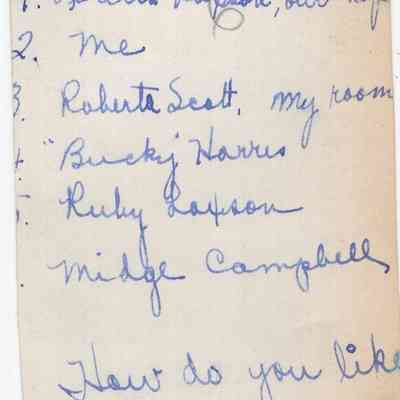 1.
2. Me
3. Roberta Scott, my room
4. "Bucky" Harris
5. Ruby Laxson
Midge Campbell
How do you like